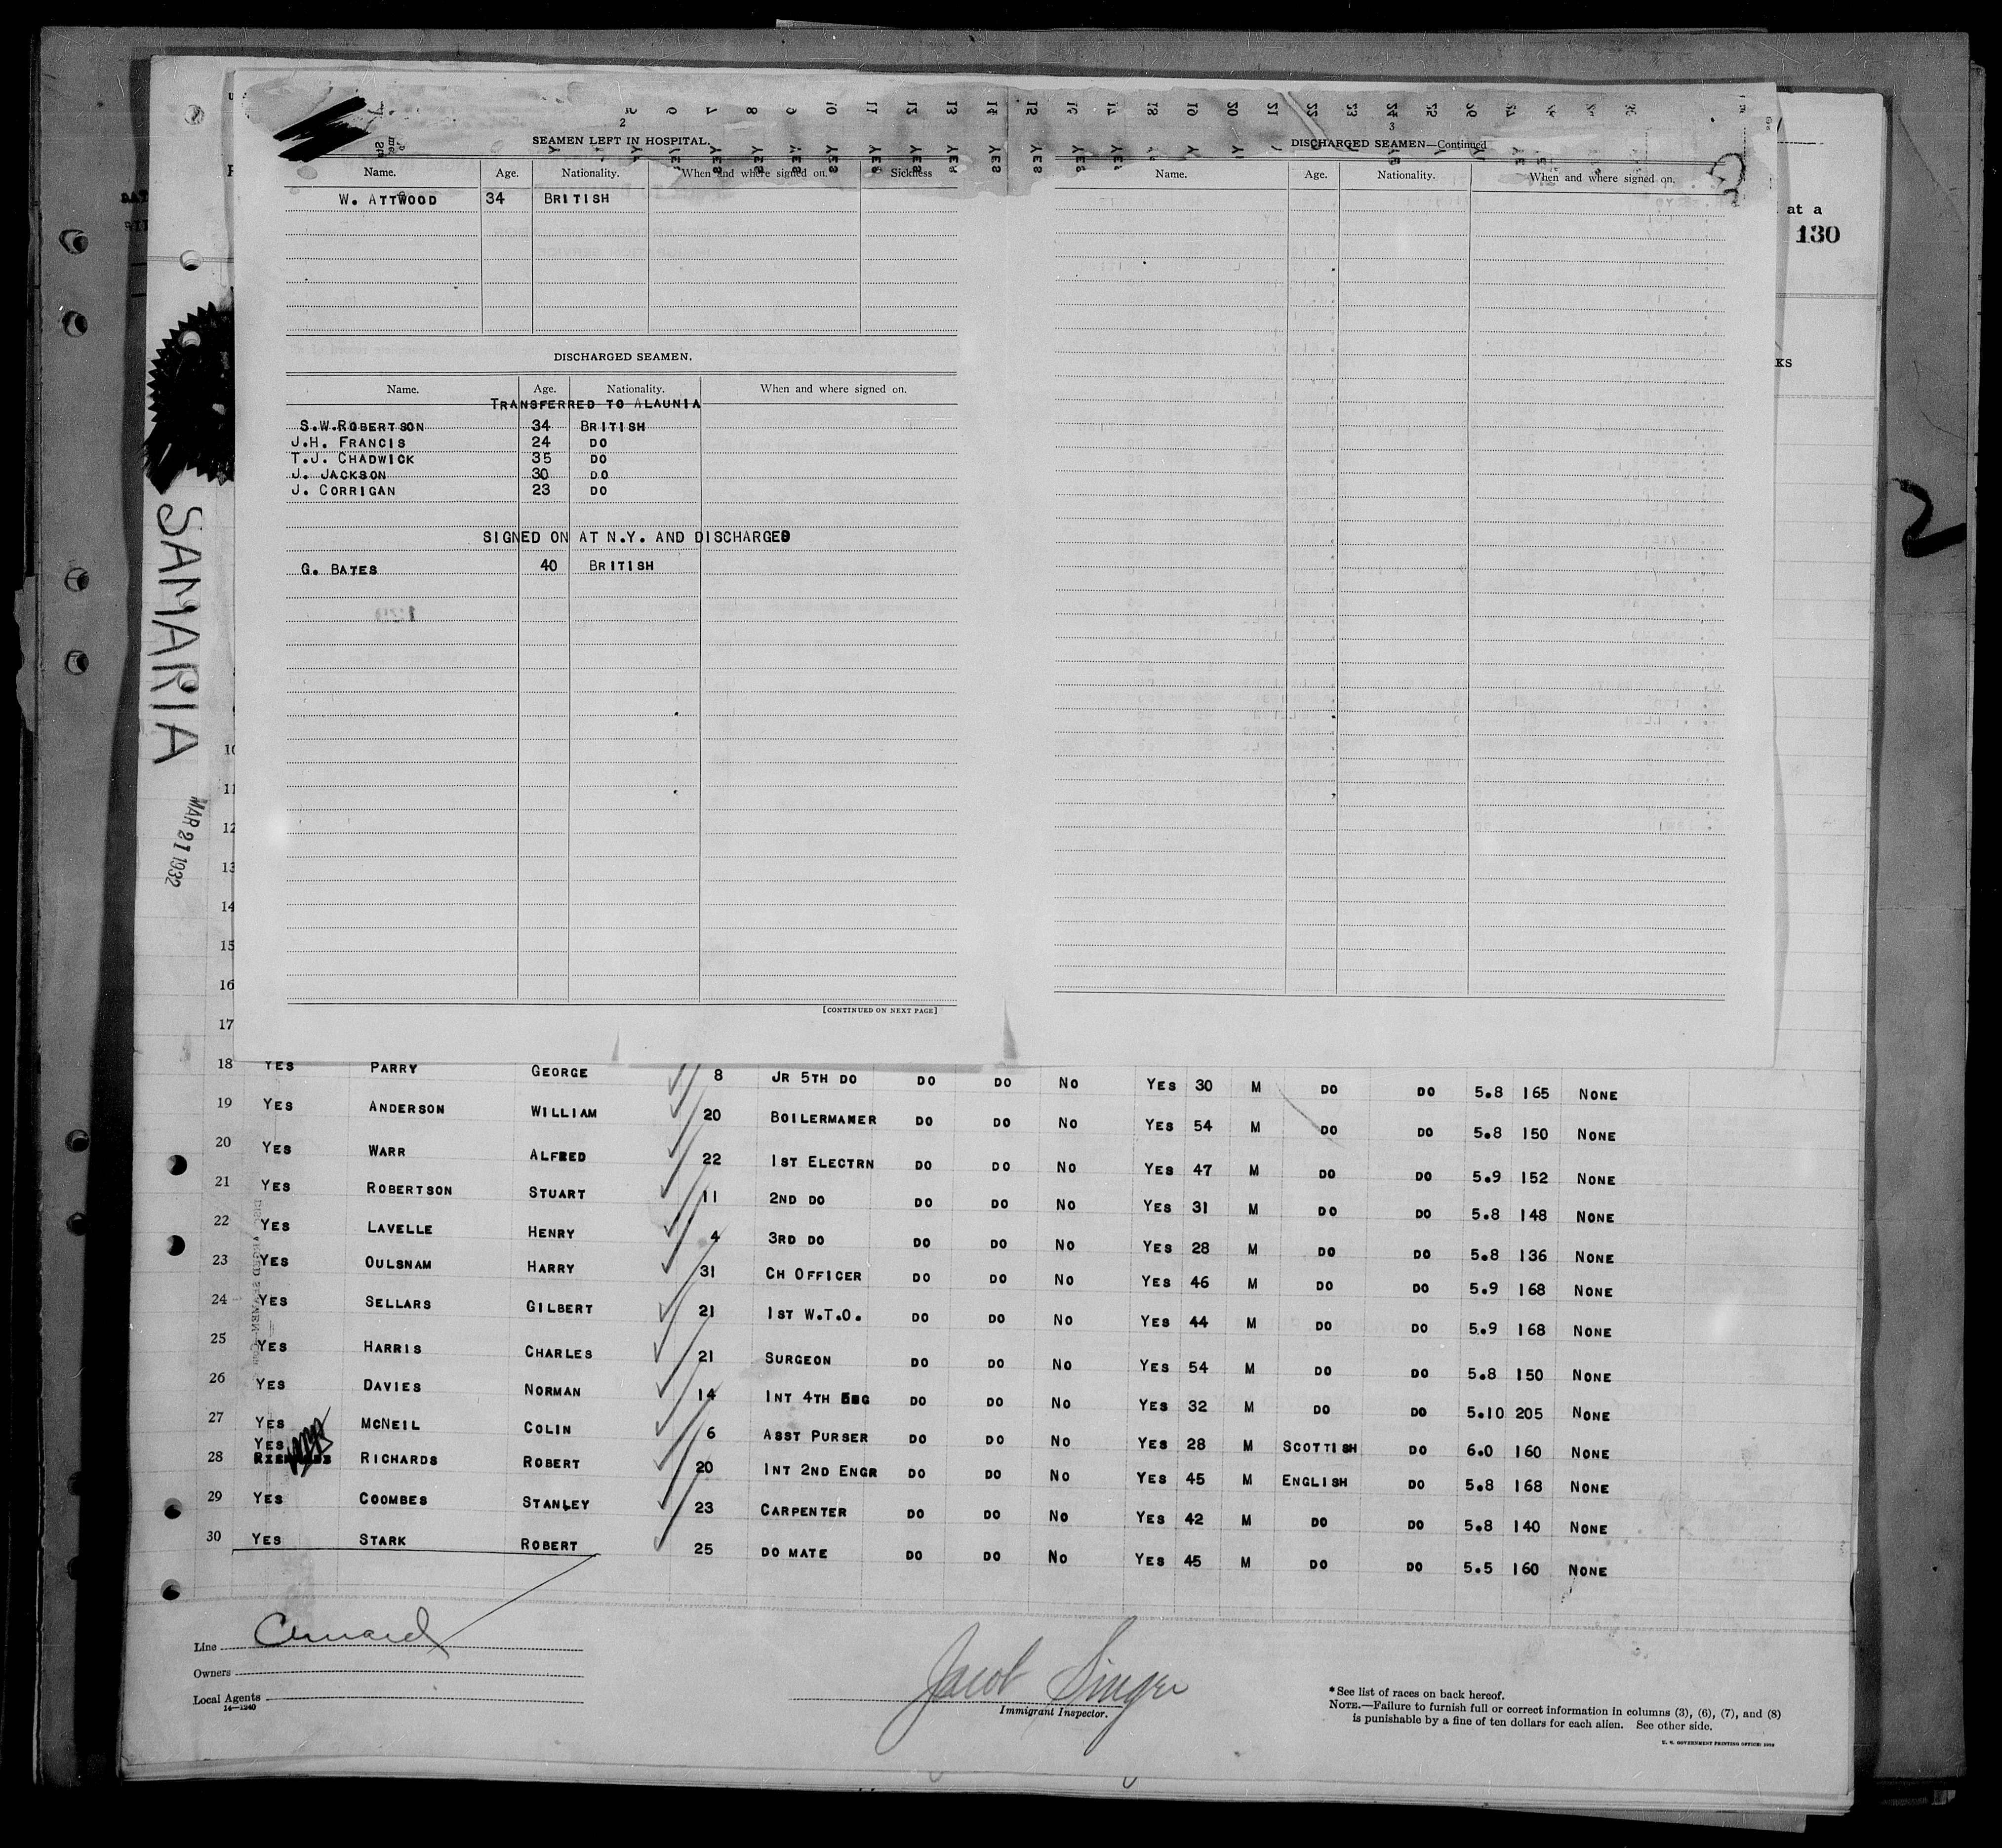 2
SEAMEN LEFT IN HOSPITAL.
Name. Age. Nationality. When and where signed on. Sickness
W. ATTWOOD 34 BRITISH
DISCHARGED SEAMEN.
Name. Age. Nationality. When and where signed on.
TRANSFERRED TO ALAUNIA
S.W.ROBERTSON 34 BRITISH
J.H. FRANCIS 24 DO
T.J. CHADWICK 35 DO
J. JACKSON 30 DO
J. CORRIGAN 23 DO
SIGNED ON AT N.Y. AND DISCHARGED
G. BATES 40 BRITISH
[CONTINUED ON NEXT PAGE]
3
DISCHARGED SEAMEN—Continued
Name. Age. Nationality. When and where signed on.
at a
130
KS
2
SAMARIA
MAR 21 1932
10
11
12
13
14
15
16
17
18 YES PARRY GEORGE 8 JR 5TH DO DO DO NO YES 30 M DO DO 5.8 165 NONE
19 YES ANDERSON WILLIAM 20 BOILERMAKER DO DO NO YES 54 M DO DO 5.8 150 NONE
20 YES WARR ALFRED 22 1ST ELECTRN DO DO NO YES 47 M DO DO 5.9 152 NONE
21 YES ROBERTSON STUART 11 2ND DO DO DO NO YES 31 M DO DO 5.8 148 NONE
22 YES LAVELLE HENRY 4 3RD DO DO DO NO YES 28 M DO DO 5.8 136 NONE
23 YES OULSNAM HARRY 31 CH OFFICER DO DO NO YES 46 M DO DO 5.9 168 NONE
24 YES SELLARS GILBERT 21 1ST W.T.O. DO DO NO YES 44 M DO DO 5.9 168 NONE
25 YES HARRIS CHARLES 21 SURGEON DO DO NO YES 54 M DO DO 5.8 150 NONE
26 YES DAVIES NORMAN 14 INT 4TH ENG DO DO NO YES 32 M DO DO 5.10 205 NONE
27 YES MCNEIL COLIN 6 ASST PURSER DO DO NO YES 28 M SCOTTISH DO 6.0 160 NONE
28 YES RICHARDS ROBERT 20 INT 2ND ENGR DO DO NO YES 45 M ENGLISH DO 5.8 168 NONE
29 YES COOMBES STANLEY 23 CARPENTER DO DO NO YES 42 M DO DO 5.8 140 NONE
30 YES STARK ROBERT 25 DO MATE DO DO NO YES 45 M DO DO 5.5 160 NONE
Line Cunard
Owners
Local Agents
14—1240
Jacob Singer
Immigrant Inspector.
*See list of races on back hereof.
NOTE.—Failure to furnish full or correct information in columns (3), (6), (7), and (8)
is punishable by a fine of ten dollars for each alien. See other side.